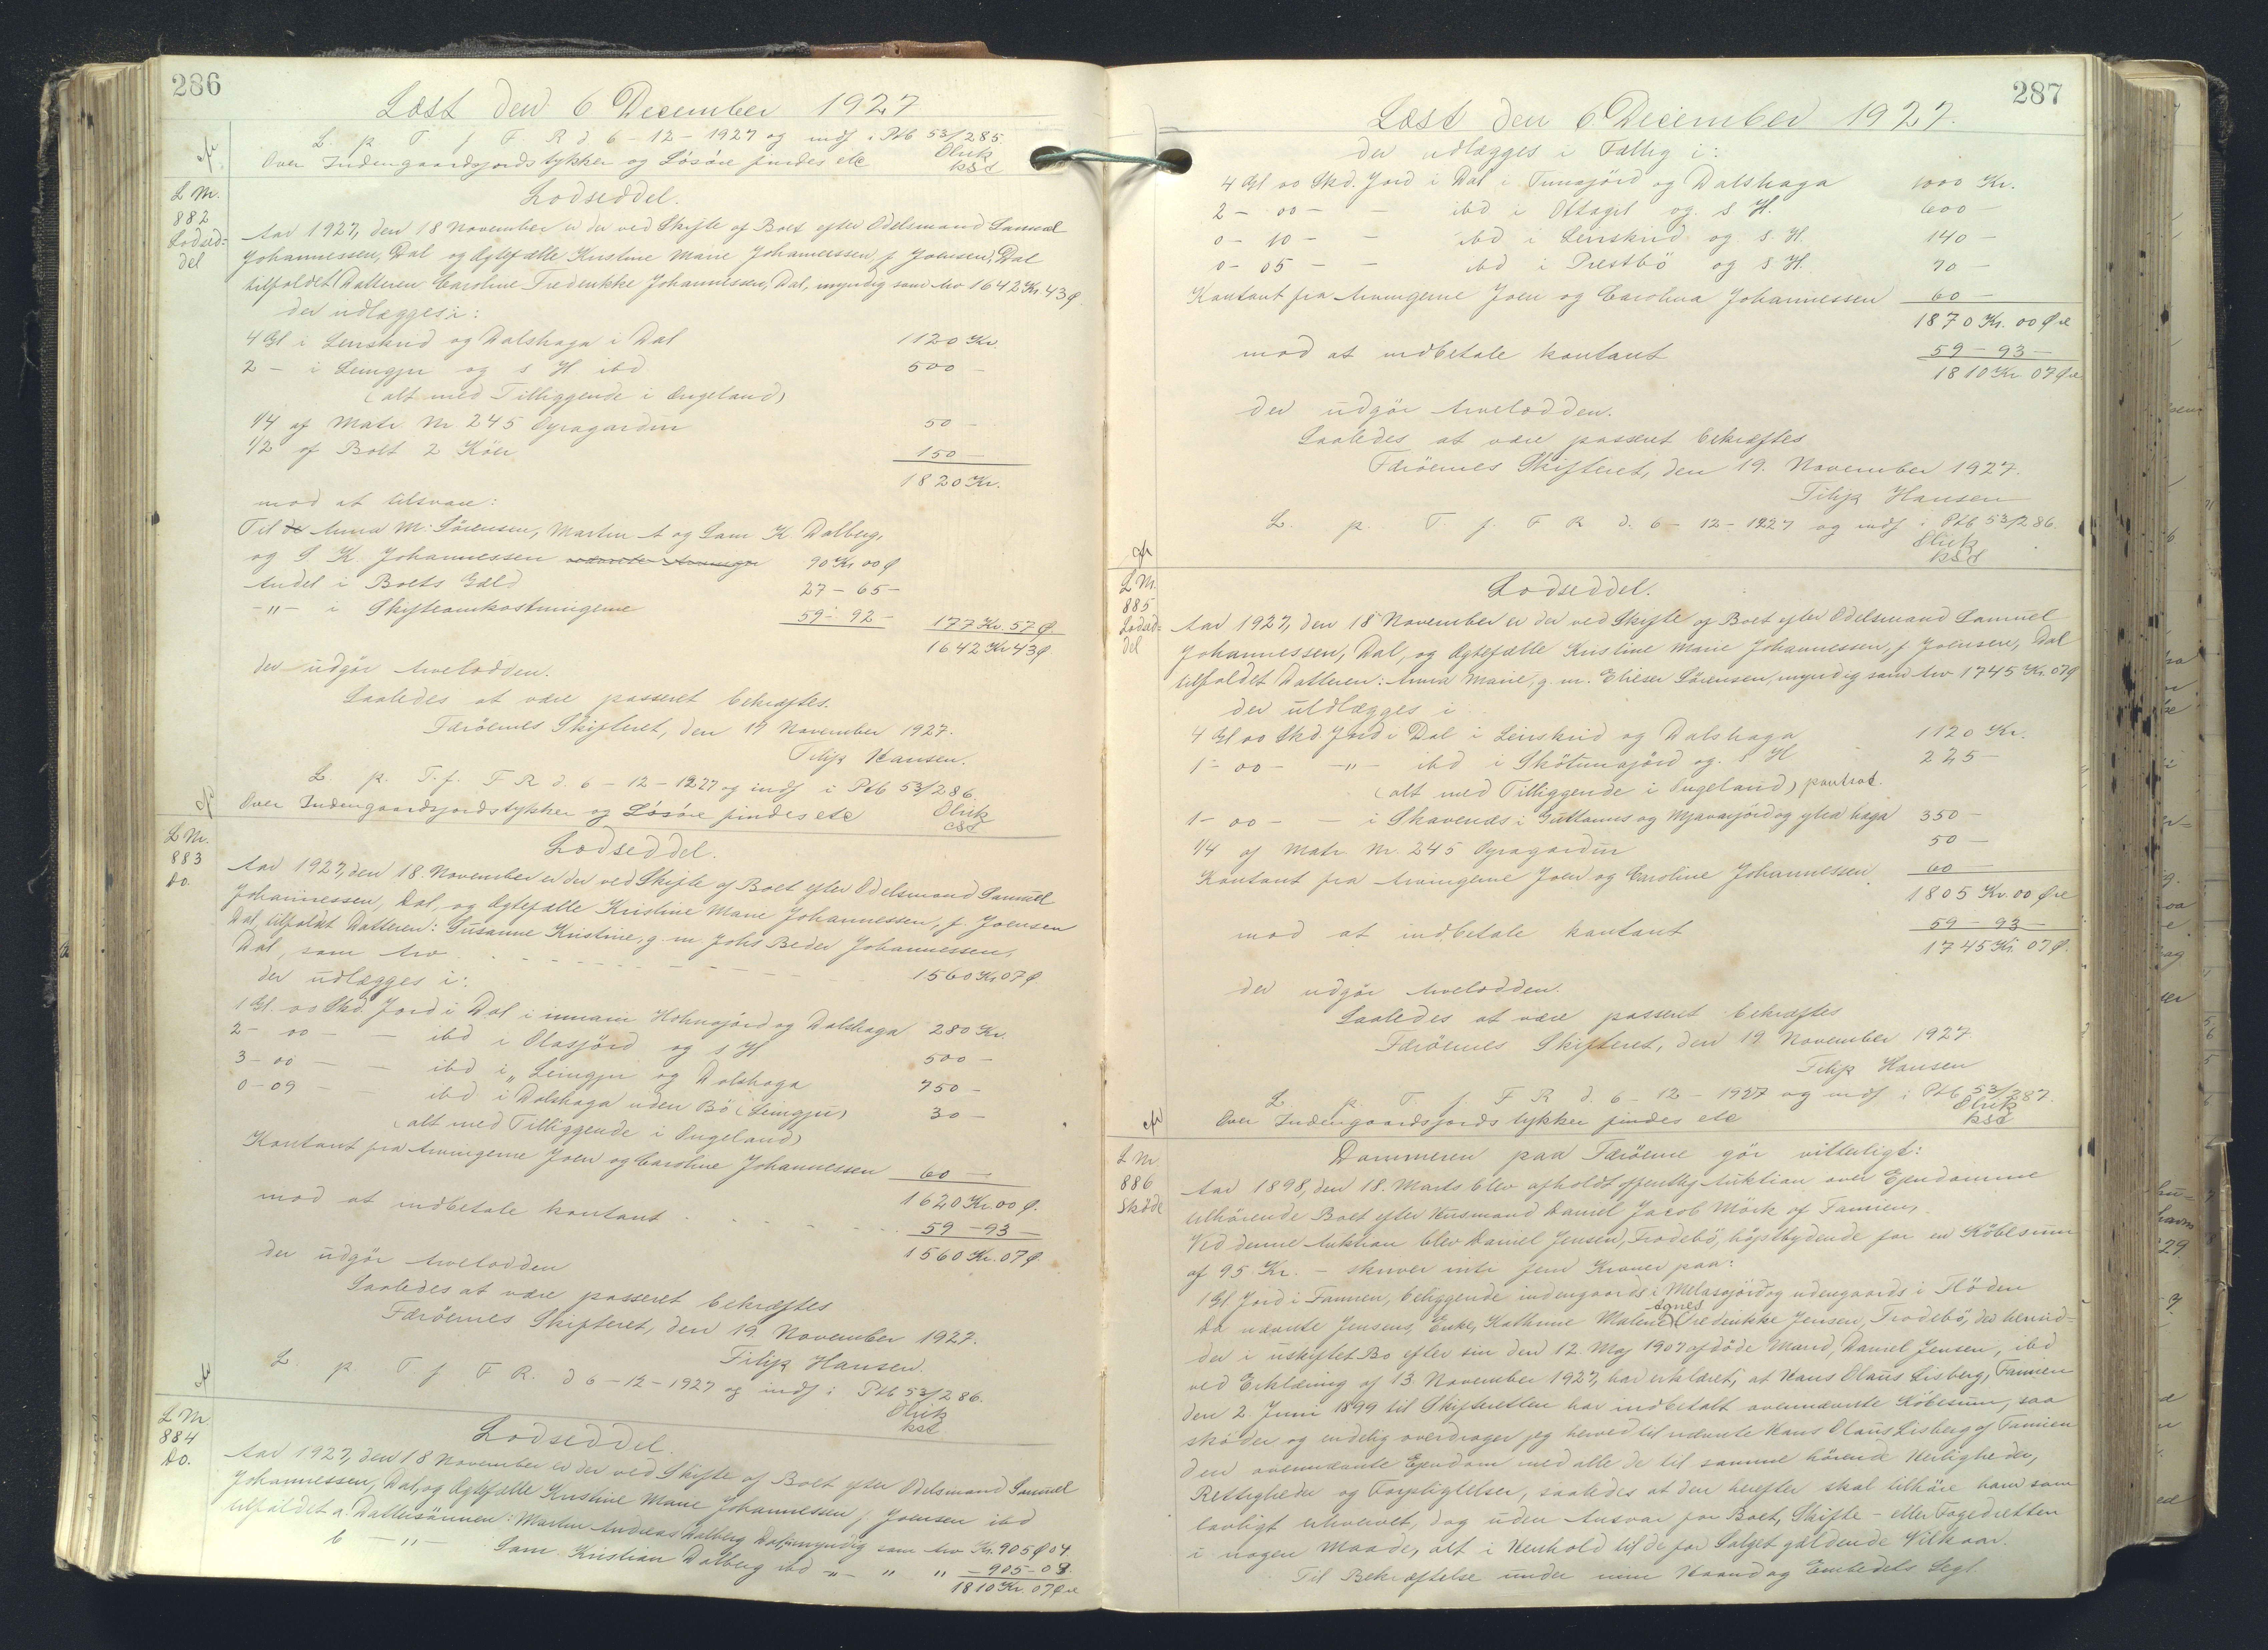 286
Læst den 6 December 1927
L. p. T. f. F R d 6-12-1927 og indf. i Ptb 53/285.
Over Indengaardsjordstykker og Løsøre findes etc
Olrik
kst
L Nr.
882
Lodsed=
del
Lodseddel.
Aar 1927, den 18 November er der ved Skifte af Boet efter Odelsmand Samuel
Johannessen, Dal og Ægtefælle Kristine Marie Johannessen, f Joensen, Dal
tilfaldet Datteren Caroline Fredrikke Johannessen, Dal, myndig som Arv 1642 Kr 43 Ø.
der udlægges i:
4 Gl i Leirskrid og Dalshaga i Dal 1120 Kr.
2 - i Leingjir og s H ibd 500 -
(alt med Tilliggende i Ongeland)
1/4 af Matr Nr 245 Oyragardur 50 -
1/2 af Bolt 2 Köer 150 -
1820 Kr.
mod at tilsvare:
Til de Anna M. Sörensen, Martin A og Sam K Dalberg,
og S K Johannessen 90 Kr 00 Ø
Andel i Boets Gæld 27 - 65 -
-"- i Skifteomkostningerne 59 - 92 - 177 Kr. 57 Ø.
1642 Kr 43 Ø
der udgör Arvelodden.
Saaledes at være passeret bekræftes.
Færöernes Skifteret, den 19 November 1927.
Filip Hansen.
L. p. T. f. F R d. 6-12-1927 og indf i Ptb 53/286.
Over Indengaardsjordstykker og Løsøre findes etc
Olrik
cst
L Nr.
883
Do.
Lodseddel.
Aar 1927, den 18. November er der ved Skifte af Boet efter Odelsmand Samuel
Johannessen, Dal, og Ægtefælle Kristine Marie Johannessen, f. Joensen
Dal, tilfaldt Datteren: Susanne Kristine, g m Johs Beder Johannessen,
Dal, som Arv 1560 Kr 07 Ø
der udlægges i:
1 Gl. 00 Skd. Jord i Dal i innari Hohnajörd og Dalshaga 280 Kr.
2 - 00 - - ibd i Olasjörd og s H 500 -
3 - 00 - - ibd i „ Leingjir og Dalshaga 750 -
0 - 09 - - ibd i Dalshaga uden Bö (Leingjir) 30 -
(alt med Tilliggende i Ongeland)
Kontant fra Arvingerne Joen og Caroline Johannessen 60 -
1620 Kr. 00 Ø.
mod at indbetale kontant 59 - 93 -
1560 Kr. 07 Ø
der udgör Arvelodden
Saaledes at være passeret bekræftes
Færöernes Skifteret, den 19. November 1927.
Filip Hansen.
L. p. T f F R. d 6-12-1927 og indf: Ptb 53/286.
Olrik
kst
L Nr
884
Do.
Lodseddel.
Aar 1927, den 18 November er der ved Skifte af Boet efter Odelsmand Samuel
Johannessen, Dal, og Ægtefælle Kristine Marie Johannessen f Joensen ibd
tilfaldet a. Dattersönnen: Martin Andreas Dalberg Dal, umyndig som Arv Kr. 905 Ø 04
b -"- Sam Kristian Dalberg ibd -"- " " - 905 - 03
1810 Kr. 07 Øre
287
Læst den 6 December 1927.
der udlægges i Fællig i:
4 Gl 00 Skd. Jord i Dal i Tunajörd og Dalshaga 1000 Kr.
2 - 00 - - ibd i Ottagil og. s. H. 600 -
0 - 10 - - ibd i Leirskrid og s. H. 140 -
0 - 05 - - ibd i Prestbö og s H. 70 -
Kontant fra Arvingerne Joen og Carolina Johannessen 60 -
1870 Kr. 00 Øre
mod at indbetale kontant 59 - 93 -
1810 Kr 07 Øre
der udgör Arvelodden.
Saaledes at være passeret bekræftes
Færöernes Skifteret, den 19. November 1927.
Filip Hansen
L. p. T. f. F R d. 6-12-1927 og indf i Ptb 53/286.
Olrik
kst
L Nr.
885
Lodsed=
del
Lodseddel.
Aar 1927, den 18 November er der ved Skifte af Boet efter Odelsmand Samuel
Johannessen, Dal, og Ægtefælle Kristine Marie Johannessen, f Joensen, Dal
tilfaldet Datteren: Anna Marie, g. m. Elieser Sörensen, myndig som Arv 1745 Kr. 07 Ø
der utdlægges i
4 Gl 00 Skd. Jord i Dal i Leirskrid og Dalshaga 1120 Kr.
1 - 00 - -"- ibd i Skötunajörd og. s H 225 -
(alt med Tilliggende i Ongeland)
1 - 00 - - i Skavenæs i Guttanus og Mjavarjörd og ytra haga 350 -
1/4 af Matr. Nr. 245 Oyragardur 50 -
Kontant fra Arvingerne Joen og Caroline Johannessen 60 -
1805 Kr. 00 Øre
mod at indbetale kontant 59 - 93 -
1745 Kr. 07 Ø.
der udgör Arvelodden.
Saaledes at være passeret bekræftes
Færöernes Skifteret, den 19 November 1927.
Filip Hansen
L. p. T. f. F R d. 6-12-1927 og indf i Ptb 53/287.
Over Indengaardsjordstykker findes etc
Olrik
kst
L Nr
886
Sköde
Dommeren paa Færöerne gör vitterligt:
Aar 1898, den 18. Marts blev afholdt offentlig Auktion over Ejendomme
tilhörende Boet efter Husmand Daniel Jacob Mörk af Famien,
Ved denne Auktion blev Daniel Jensen, Frodebö, höjstbydende for en Köbesum
af 95 Kr. - skriver niti fem Kroner paa:
1 Gl. Jord i Famien, beliggende indengaards i Melasjörd og udengaards i Flöden
Da nævnte Jensens, Enke, Kathrine Malene Agnes Fredrikke Jensen, Frodebö, der hensid=
der i uskiftet Bo efter sin den 12 Maj 1907 afdöde Mand, Daniel Jensen, ibd
ved Erklæring af 13. November 1927, har erklæret, at Hans Olaus Lisberg, Famien
den 2. Juni 1899 til Skifteretten har indbetalt ovennævnte Köbesum, saa
sköder og endelig overdrager jeg herved til nævnte Hans Olaus Lisberg af Famien
den ovennævnte Ejendom med alle de til samme hörende Herligheder,
Rettigheder og Forpligtelser, saaledes at den herefter skal tilhöre ham som
lovligt erhvervet, dog uden Ansvar for Boet, Skifte - eller Fogedretten
i nogen Maade, alt i Henhold til de for Salget gældende Vilkaar.
Til Bekræftelse under min Haand og Embedets Segl.